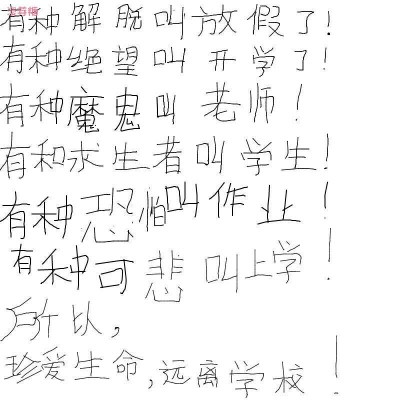 有种解脱叫放假了!
有种绝望叫开学了!
有种魔鬼叫老师!
有和求生者叫学生!
有种恐怕叫作业!
有种可悲叫上学!
所以,
珍爱生命,远离学校!